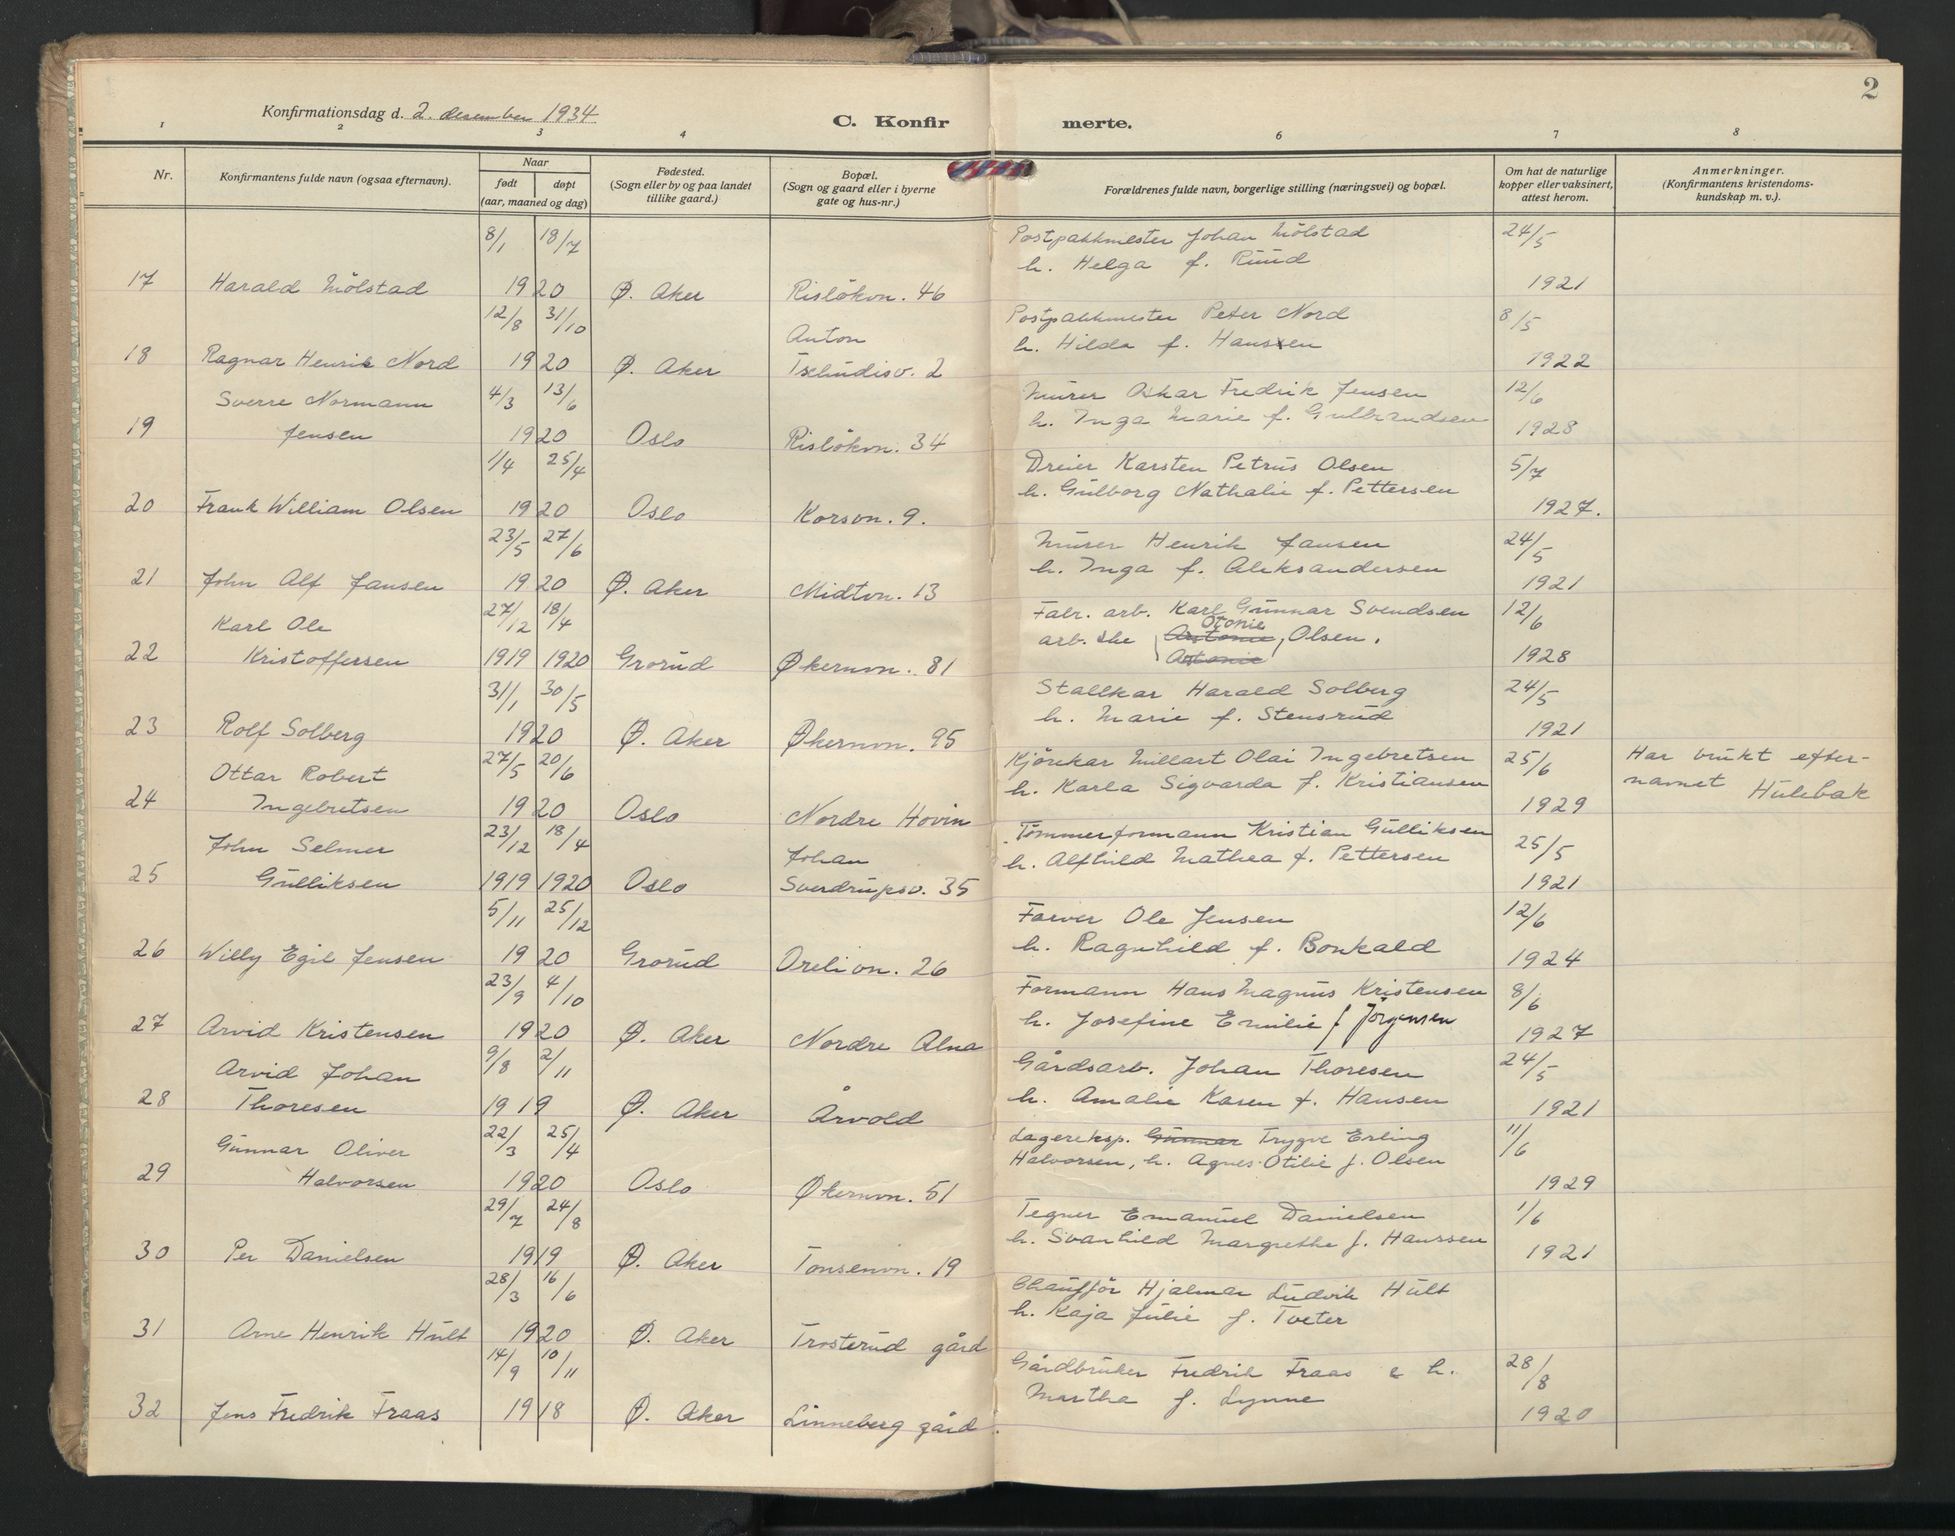 2
Konfirmationsdag d. 2. desember 1934
C. Konfirmerte.
1 2 3 4 5 6 7 8
Nr.
Konfirmantens fulde navn (ogsaa efternavn).
Naar
født døpt
(aar, maaned og dag)
Fødested.
(Sogn eller by og paa landet
tillike gaard.)
Bopæl.
(Sogn og gaard eller i byerne
gate og hus-nr.)
Forældrenes fulde navn, borgerlige stilling (næringsvei) og bopæl.
Om hat de naturlige
kopper eller vaksinert,
attest herom.
Anmerkninger.
(Konfirmantens kristendoms-
kundskap m. v.).
8/1 18/7 Postpakkmester Johan Mölstad 24/5
h. Helga f. Ruud
17 Harald Mölstad 1920 Ø. Aker Risløkvn. 46 1921
12/8 31/10 Anton Postpakkmester Peter Nord 8/5
h. Hilda f. Hanssen
18 Ragnar Henrik Nord 1920 Ø. Aker Tschudisv. 2 1922
Sverre Normann 4/3 13/6 Murer Oskar Fredrik Jensen 12/6
h. Inga Marie f. Gulbrandsen
19 Jensen 1920 Oslo Risløkvn. 34 1928
1/4 25/4 Dreier Karsten Petrus Olsen 5/7
h. Gulborg Nathalie f. Pettersen
20 Frank William Olsen 1920 Oslo Korsvn. 9. 1927.
23/5 27/6 Murer Henrik Jansen 24/5
h. Inga f. Aleksandersen
21 John Alf Jansen 1920 Ø. Aker Midtvn. 13 1921
Karl Ole 27/12 18/4 Fabr. arb. Karl Gunnar Svendsen 12/6
Otonie
arb. ske Antonie, Olsen.
Antonie
22 Kristoffersen 1919 1920 Grorud Økernvn. 81 1928
31/1 30/5 Stallkar Harald Solberg 24/5
h. Marie f. Stensrud
23 Rolf Solberg 1920 Ø. Aker Økernvn. 95 1921
Ottar Robert 27/5 20/6 Kjørekar Millart Olai Ingebretsen 25/6 Har brukt efter-
h. Karla Sigvarda f. Kristiansen navnet Hulebak
24 Ingebretsen 1920 Oslo Nordre Hovin 1929
John Selmer 23/12 18/4 Johan Tömmerformann Kristian Gulliksen 25/5
h. Alfhild Mathea f. Pettersen
25 Gulliksen 1919 1920 Oslo Sverdrupsv. 35 1921
5/11 25/12 Farver Ole Jensen 12/6
h. Ragnhild f. Bonkald
26 Willy Egil Jensen 1920 Grorud Orelivn. 26 1924
23/9 4/10 Formann Hans Magnus Kristensen 8/6
h. Josefine Emilie f Jörgensen
27 Arvid Kristensen 1920 Ø. Aker Nordre Alna 1927
Arvid Johan 9/8 2/11 Gårdsarb. Johan Thoresen 24/5
h. Amalie Karen f. Hansen
28 Thoresen 1919 Ø. Aker Årvold 1921
Gunnar Oliver 22/3 25/4 Lagereksp. Gunnar Trygve Erling 11/6
Halvorsen, h. Agnes Otilie f. Olsen
29 Halvorsen 1920 Oslo Økernvn. 51 1929
29/7 24/8 Tegner Emanuel Danielsen 1/6
h. Svanhild Margrethe f. Hanssen
30 Per Danielsen 1919 Ø. Aker Tonsenvn. 19 1921
28/3 16/6 Chauffør Hjalmar Ludvik Hult
h. Kaja Julie f. Tveter
31 Arne Henrik Hult 1920 Ø. Aker Trosterud gård
14/9 10/11 Gårdbruker Fredrik Fraas & h. 28/8
Martha f. Lynne
32 Jens Fredrik Fraas 1918 Ø. Aker Linneberg gård. 1920